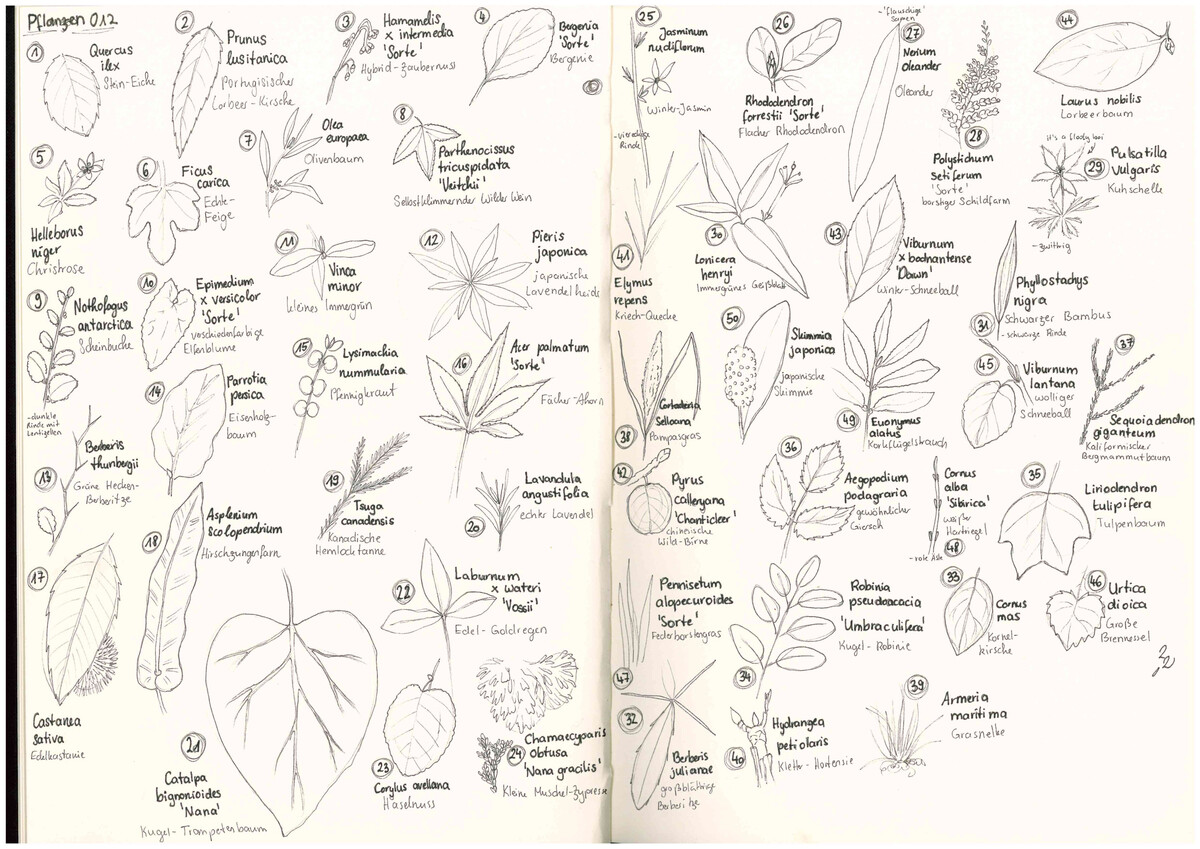 Pflanzen 012
1
Quercus
ilex
Stein-Eiche
2
Prunus
lusitanica
Portugisischer
Lorbeer-Kirsche
3
Hamamelis
x intermedia
'Sorte'
Hybrid-Zaubernuss
4
Bergenia
'Sorte'
Bergenie
5
Helleborus
niger
Christrose
6
Ficus
carica
Echte-
Feige
7
Olea
europaea
Olivenbaum
8
Parthenocissus
tricuspidata
'Veitchii'
Selbstklimmender Wilder Wein
9
Nothofagus
antarctica
Scheinbuche
-dunkle
Rinde mit
Lentizellen
10
Epimedium
x versicolor
'Sorte'
verschiedenfarbige
Elfenblume
11
Vinca
minor
kleines Immergrün
12
Pieris
japonica
japanische
Lavendelheide
13
Berberis
thunbergii
Grüne Hecken-
Berberitze
14
Parrotia
persica
Eisenholz-
baum
15
Lysimachia
nummularia
Pfennigkraut
16
Acer palmatum
'Sorte'
Fächer-Ahorn
17
Castanea
sativa
Edelkastanie
18
Asplenium
scolopendrium
Hirschzungenfarn
19
Tsuga
canadensis
Kanadische
Hemlocktanne
20
Lavandula
angustifolia
echter Lavendel
21
Catalpa
bignonioides
'Nana'
Kugel-Trompetenbaum
22
Laburnum
x wateri
'Vossii'
Edel-Goldregen
23
Corylus avellana
Haselnuss
24
Chamaecyparis
obtusa
'Nana gracilis'
Kleine Muschel-Zypresse
25
Jasminum
nudiflorum
Winter-Jasmin
-viereckige
Rinde
26
Rhododendron
forrestii 'Sorte'
Flacher Rhododendron
-"flauschige"
Samen
27
Nerium
Oleander
Oleander
28
Polystichum
setiferum
'Sorte'
borstiger Schildfarn
44
Laurus nobilis
Lorbeerbaum
29
Pulsatilla
vulgaris
Kuhschelle
-zwittrig
41
Elymus
repens
Kriech-Quecke
30
Lonicera
henryi
Immergrünes Geißblatt
43
Viburnum
x bodnantense
'Dawn'
Winter-Schneeball
31
Phyllostachys
nigra
Schwarzer Bambus
-schwarze Rinde
38
Cortaderia
Selloana
Pampasgras
50
Skimmia
japonica
japanische
Skimmie
49
Euonymus
alatus
Korkflügelstrauch
45
Viburnum
lantana
wolliger
Schneeball
37
Sequoiadendron
giganteum
Kalifornischer
Bergmammutbaum
42
Pyrus
calleryana
'Chanticleer'
chinesische
Wild-Birne
36
Aegopodium
podagraria
gewöhnlicher
Giersch
48
Cornus
alba
'Sibirica'
weißer
Hartriegel
-rote Äste
35
Liriodendron
tulipifera
Tulpenbaum
47
Pennisetum
alopecuroides
'Sorte'
Federborstengras
34
Robinia
pseudoacacia
'Umbraculifera'
Kugel-Robinie
33
Cornus
mas
Kornel-
kirsche
46
Urtica
dioica
Große
Brennessel
32
Berberis
julianae
großblättrige
Berberitze
40
Hydrangea
petiolaris
Kletter-Hortensie
39
Armeria
maritima
Grasnelke